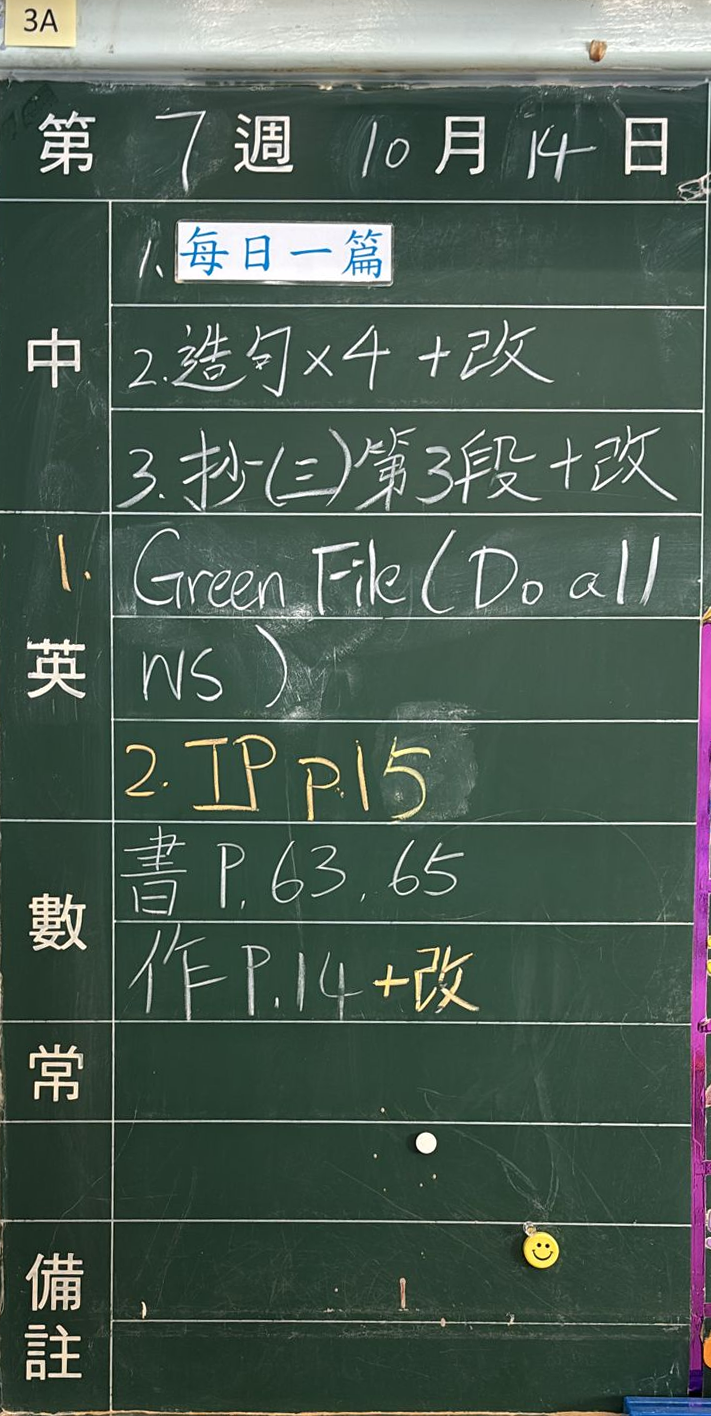 3A
第 7 週 10 月 14 日
中
1. 每日一篇
2. 造句×4 +改
3. 抄(三)第3段+改
英
1. Green File (Do all
WS)
2. IP p.15
數
書 P. 63, 65
作 P.14 +改
常
備註